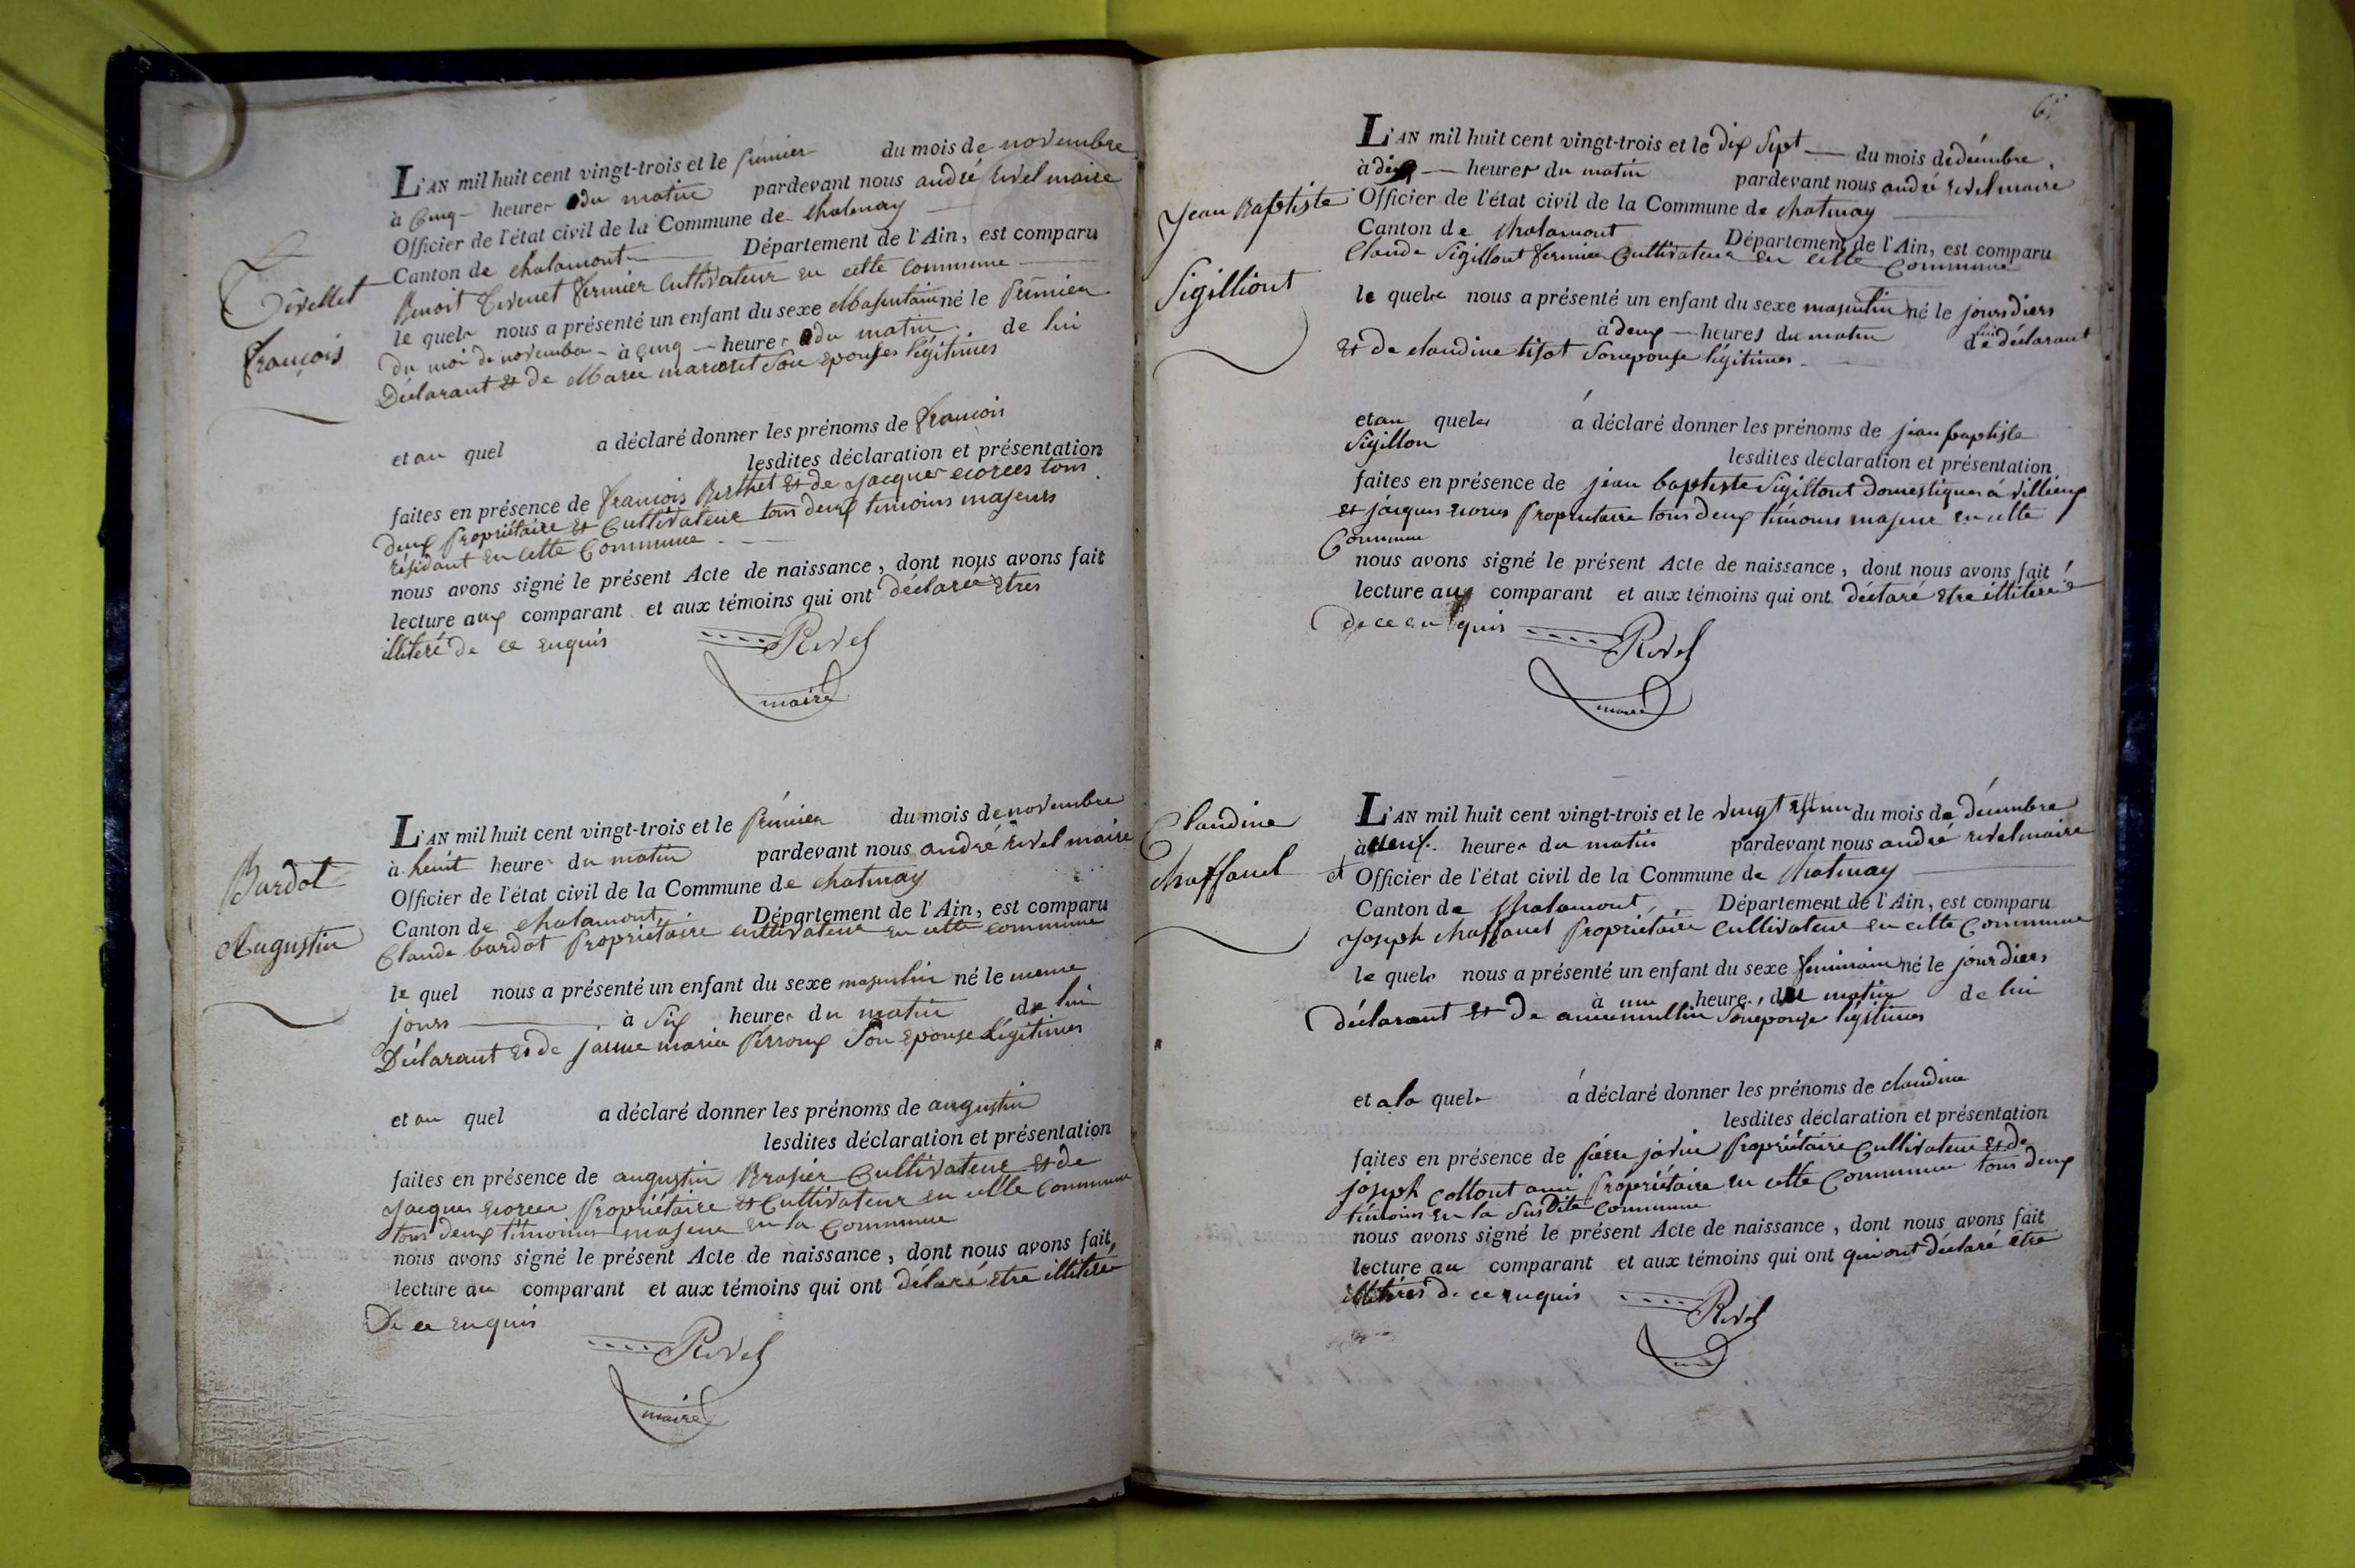 Tivellet
françois
L'AN mil huit cent vingt-trois et le premier du mois de novembre
à cinq heures du matin pardevant nous andré revel maire
Officier de l'état civil de la Commune de chatenay
Canton de chalamont Département de l'Ain, est comparu
Benoit fermier Cultivateur en cette Commune
le quel nous a présenté un enfant du sexe né le premier
du moi de novembre à cinq heures du matin de lui
Déclarant et de son epouses légitimes
et au quel a déclaré donner les prénoms de françois
lesdites déclaration et présentation
faites en présence de françois Berthet et de jacques tous
deux propriétaire et Cultivateur tous deux temoins majeurs
résidant en cette Commune
nous avons signé le présent Acte de naissance, dont nous avons fait
lecture aux comparant et aux témoins qui ont déclaré etres
illiteré de ce enquis
Revel
maire
Bardot
Augustin
L'AN mil huit cent vingt-trois et le premier du mois de novembre
à heuit heures du matin pardevant nous andré revel maire
Officier de l'état civil de la Commune de chatnay
Canton de chalamont Département de l'Ain, est comparu
Claude bardot propriétaire cultivateur en cette commune
le quel nous a présenté un enfant du sexe masculin né le meme
jours à six heures du matin de lui
Déclarant et de janne maria perroux son epouse légitimes
et au quel a déclaré donner les prénoms de augustin
lesdites déclaration et présentation
faites en présence de augustin Brasier Cultivateur et de
jacques propriétaire et cultivateur en cette commune
tous deux témoins majeur en la commune
nous avons signé le présent Acte de naissance, dont nous avons fait
lecture au comparant et aux témoins qui ont etre
De ce enquis
Revel
maire
Jean Baptiste
Sigilliout
L'AN mil huit cent vingt-trois et le dix sept du mois de décembre
à heures du matin pardevant nous andré revel maire
Officier de l'état civil de la Commune de chatnay
Canton de chalamont Département de l'Ain, est comparu
Claude Sigillout fermier Cultivateur en cette Commune
le quel nous a présenté un enfant du sexe masculin né le jours diers
à deux heures du matin de lui déclarant
et de claudine tisot son epouse légitimes
et au quel a déclaré donner les prénoms de jean baptiste
Sigillon
lesdites déclaration et présentation
faites en présence de jean baptiste Sigillout domestiques à villieux
et jacques propriétaire tous deux témoins majeur en cette
Commune
nous avons signé le présent Acte de naissance, dont nous avons fait
lecture aux comparant et aux témoins qui ont déclaré etre
de ce en quis
Revel
maire
Claudine
chaffanel
L'AN mil huit cent vingt-trois et le vingt et un du mois de décembre
à heures du matin pardevant nous andré revel maire
Officier de l'état civil de la Commune de chatnay
Canton de chalamont Département de l'Ain, est comparu
joseph chaffanel propriétaire Cultivateur en cette Commune
le quel nous a présenté un enfant du sexe né le jour diers
à une heure, du matin de lui
déclarant et de son epouse légitimes
et a la quel a déclaré donner les prénoms de claudine
lesdites déclaration et présentation
faites en présence de propriétaire cultivateur et de
joseph propriétaire en cette Commune tous deux
témoins en la susdite commune
nous avons signé le présent Acte de naissance, dont nous avons fait
lecture au comparant et aux témoins qui ont qui ont déclaré etre
de ce enquis
Revel